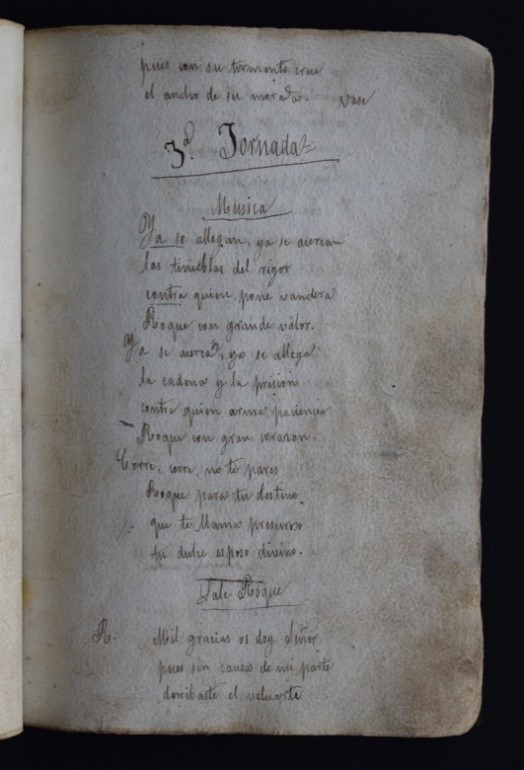 pues con su tormento cree
el ancho de su morada. vase
3ª. Jornada
Musica
Ya se allegan, ya se acercan
las tinieblas del rigor
contra quien pone vandera
Roque con grande valor.
Ya se acerca, ya se allega
la cadena y la prision
contra quien arma paciencia
Roque con gran corazon.
Corre, corre, no te pares
Roque para tu destino
que te llama presuroso
tu dulce esposo divino.
Sale Roque
R. Mil gracias os doy Señor
pues sin causa de mi parte
derribaste el valuarte